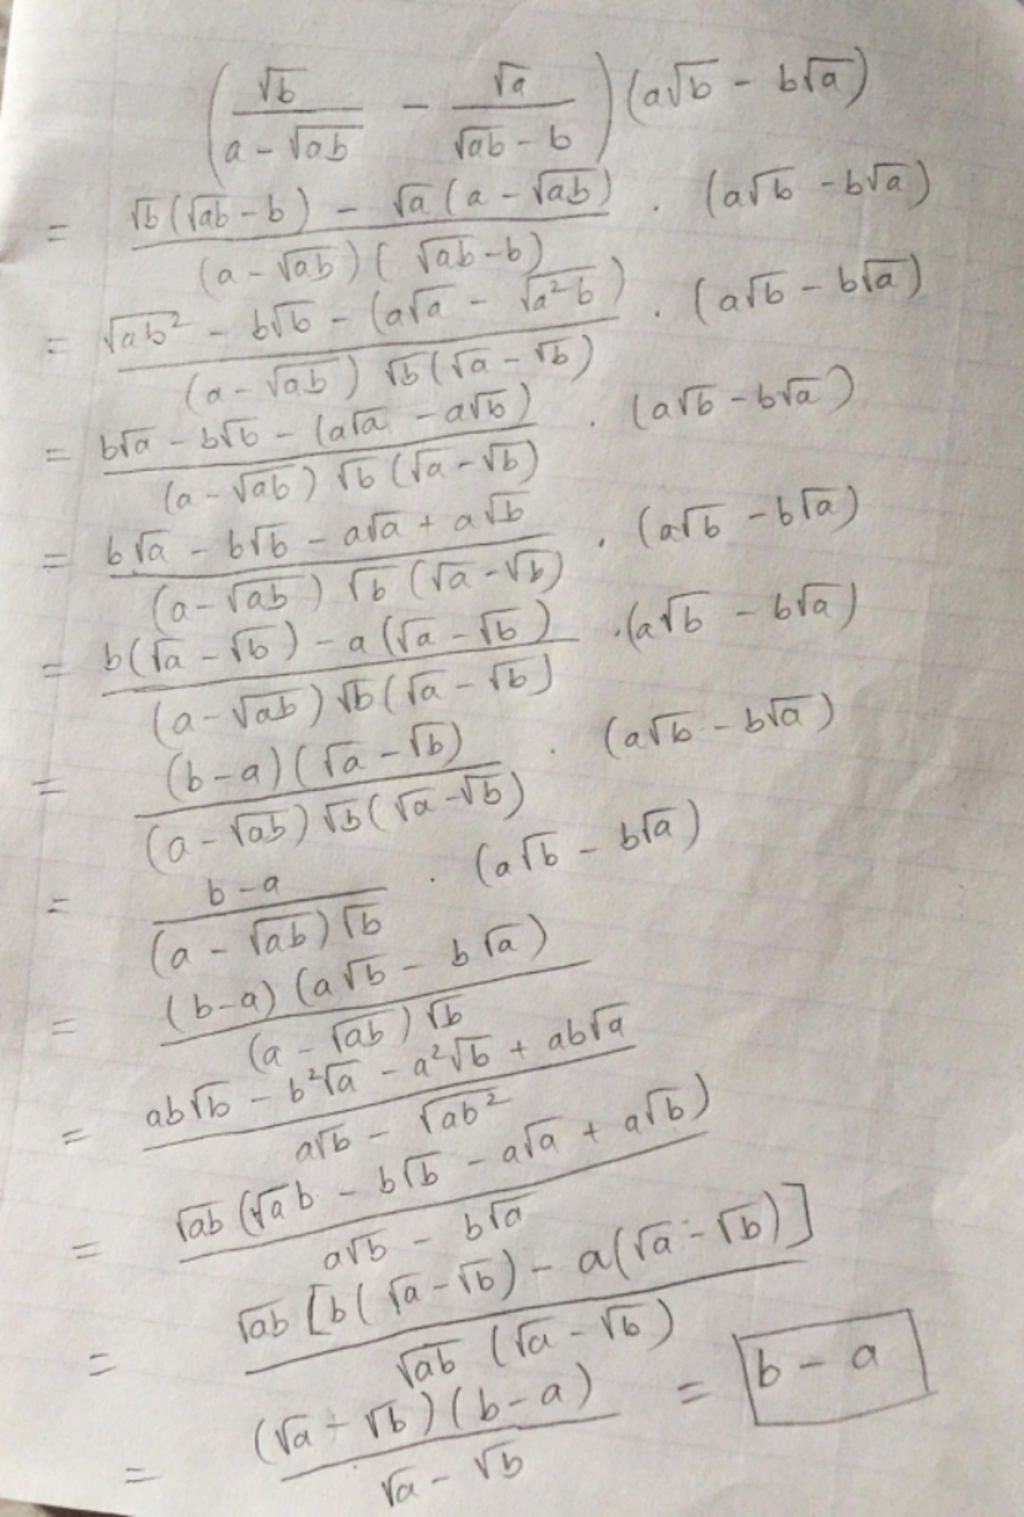 (√b/(a - √ab) - √a/(√ab - b)) (a√b - b√a)
= (√b(√ab - b) - √a(a - √ab))/((a - √ab)(√ab - b)) . (a√b - b√a)
= (√ab² - b√b - (a√a - √a²b))/((a - √ab) √b(√a - √b)) . (a√b - b√a)
= (b√a - b√b - (a√a - a√b))/((a - √ab) √b(√a - √b)) . (a√b - b√a)
= (b√a - b√b - a√a + a√b)/((a - √ab) √b(√a - √b)) . (a√b - b√a)
= (b(√a - √b) - a(√a - √b))/((a - √ab) √b(√a - √b)) . (a√b - b√a)
= ((b - a)(√a - √b))/((a - √ab) √b(√a - √b)) . (a√b - b√a)
= (b - a)/((a - √ab) √b) . (a√b - b√a)
= ((b - a)(a√b - b√a))/((a - √ab) √b)
= (ab√b - b²√a - a²√b + ab√a)/(a√b - √ab²)
= (√ab (√a b - b√b - a√a + a√b))/(a√b - b√a)
= (√ab [b(√a - √b) - a(√a - √b)])/(√ab (√a - √b))
= ((√a - √b)(b - a))/(√a - √b) = b - a